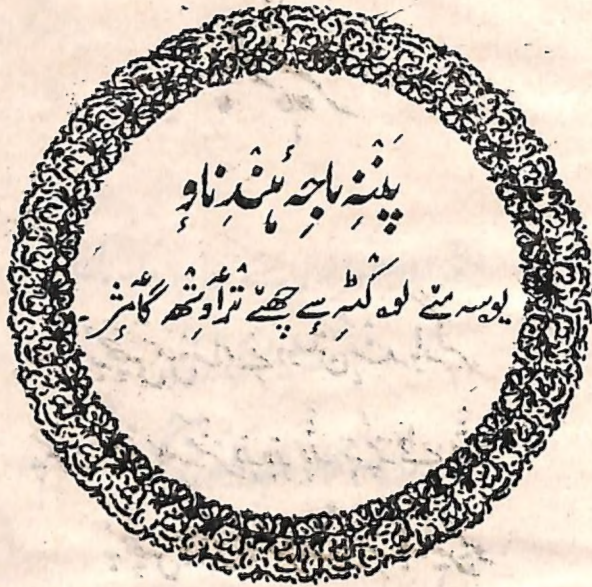 پَننِہ باجہِ ہٕنْدِ ناوٕ
یوسہ مےٚ لۄکٹہِ ےٚ چھنےٚ ترٲوِتھ گٲمٕژ۔